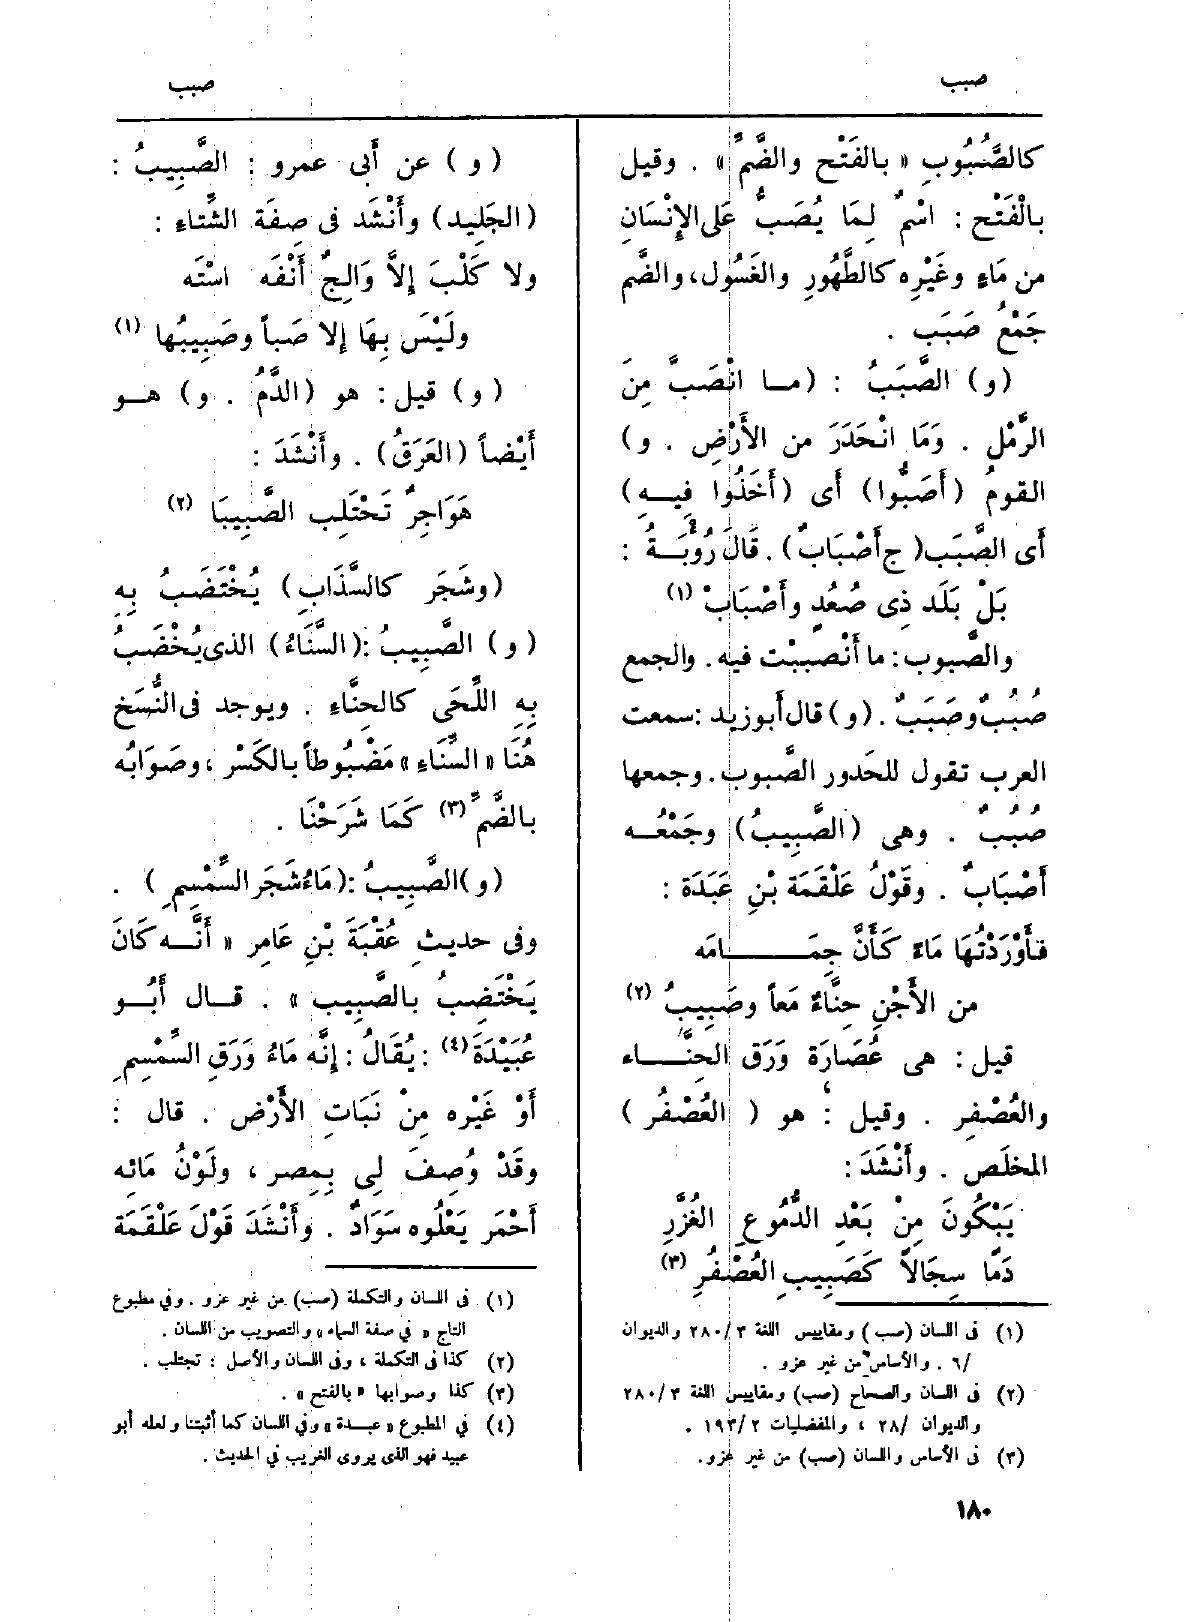 صبب
صبب
كالصَّبُوبِ « بالفَتْح والضَّمِّ » . وقيل
بالْفَتْح : اسْمٌ لِمَا يُصَبُّ عَلى الإنْسَانِ
من مَاءٍ وغَيْرِه كالطَّهُورِ والغَسُول، والضَّم
جَمْعُ صَبَب .
(و) الصَّبَبُ : (مـا انْصَبَّ مِنَ
الرَّمْل . وَمَا انْحَدَرَ من الأَرْضِ . و)
القومُ (أَصَبُّوا) أى (أَخَذُوا فِيهِ)
أى الصَّبَب( ج أَصْبَابٌ) . قَالَ رُؤْبَةُ :
بَلْ بَلَد ذِى صُعُدٍ وأَصْبَابْ (١)
والصَّبوب: ما أَنْصببْت فيه . والجمع
صُبُبٌ وصَبَبٌ . (و) قال أَبوزيد :سمعت
العرب تقول للحَدور الصَّبوب . وجمعها
صُبُبٌ . وهى (الصَّبِيبُ) وجَمْعُه
أَصْبَابٌ . وقَوْلُ عَلْقَمَة بْنِ عَبَدَة :
فأَوْرَدْتُهَا مَاءً كَأَنَّ جِمَامَه
من الأَجْنِ حِنَّاءٌ مَعاً وصَبِيبُ (٢)
قيل : هى عُصَارَة وَرَق الحِنَّاء
والعُصْفر . وقيل : هو ( العُصْفُر )
المخلَص . وأَنْشَدَ :
يَبْكُونَ مِنْ بَعْدِ الدُّمُوعِ الغُزَّرِ
دَمًّا سِجَالاً كَصَبِيبِ العُصْفُرِ (٣)
(١) فى اللسان (صب) ومقاييس اللغة ٣/ ٢٨٠ والديوان
/٦ . والأساس من غير عزو .
(٢) فى اللسان والصحاح (صب) ومقاييس اللغة ٣/ ٢٨٠
والديوان /٢٨ ، والمفضليات ٢/ ١٩٣ .
(٣) فى الأساس واللسان (صب) من غير عزو.
١٨٠
(و) عن أَبى عمرو : الصَّبِيبُ :
(الجَلِيد) وأَنْشَد فى صفَة الشِّتاءِ :
ولا كَلْبَ إلاَّ وَالِجٌ أَنْفَه اسْتَه
ولَيْسَ بِهَا إلا صَباً وصَبِيبُها (١)
(و) قيل : هو (الدَّمُ . و) هو
أَيْضاً (العَرَقُ) . وأَنْشَدَ :
هَوَاجِرٌ تَحْتَلِب الصَّبِيبَا (٢)
(وشَجَر كالسَّذَابِ) يُخْتَضَبُ بِهِ
(و) الصَّبِيبُ :(السَّنَاءُ) الذى يُخْضَبُ
بِهِ اللِّحَى كالحِنَّاءِ . ويوجد فى النُّسَخ
هُنَا « السِّنَاءِ » مَضْبُوطاً بالكَسْر ، وصَوَابُه
بالضَّمِّ (٣) كَمَا شَرَحْنَا .
(و) الصَّبِيبُ :(مَاءُ شَجَرِ السِّمْسِمِ ) .
وفى حديثِ عُقْبَةَ بْنِ عَامِر « أَنَّه كَانَ
يَخْتَضِبُ بالصَّبِيبِ » . قـال أَبُو
عُبَيْدَةَ (٤) : يُقَالُ : إنَّه مَاءُ وَرَقِ السِّمْسِمِ
أَوْ غَيْرِه مِنْ نَبَاتِ الأَرْضِ . قال :
وقَدْ وُصِفَ لِى بِمِصر ، ولَوْنُ مَائه
أَحْمَر يَعْلُوه سَوَادٌ . وأَنْشَدَ قَوْلَ عَلْقَمَة
(١) فى اللسان والتكملة (صب) من غير عزو . وفي مطبوع
التاج « في صفة السماء » والتصويب من اللسان .
(٢) كذا فى التكملة ، وفى اللسان والأصل : تجتلب .
(٣) كذا وصوابها « بالفتح » .
(٤) في المطبوع « عبدة » وفي اللسان كما أثبتنا ولعله أبو
عبيد فهو الذى يروى الغريب في الحديث .